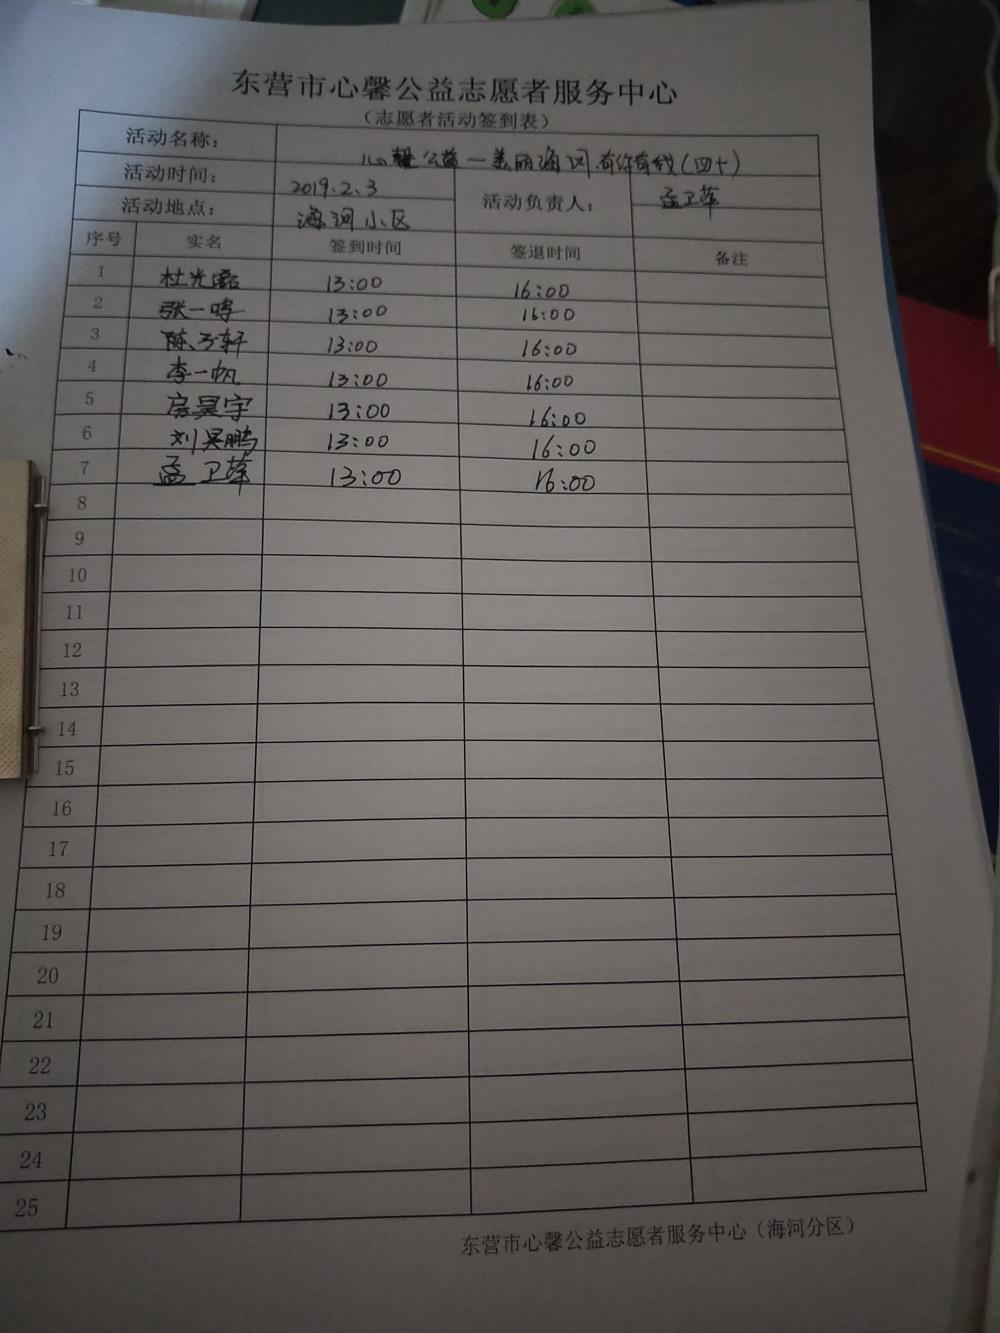 东营市心馨公益志愿者服务中心
（志愿者活动签到表）
活动名称： 心馨公益一美丽海河,有你有我(四十)
活动时间： 2019.2.3 活动负责人： 孟卫萍
活动地点： 海河小区
序号 实名 签到时间 签退时间 备注
1 杜光磊 13:00 16:00
2 张一鸣 13:00 16:00
3 陈子轩 13:00 16:00
4 李一帆 13:00 16:00
5 房昊宇 13:00 16:00
6 刘昊鹏 13:00 16:00
7 孟卫萍 13:00 16:00
8
9
10
11
12
13
14
15
16
17
18
19
20
21
22
23
24
25
东营市心馨公益志愿者服务中心（海河分区）